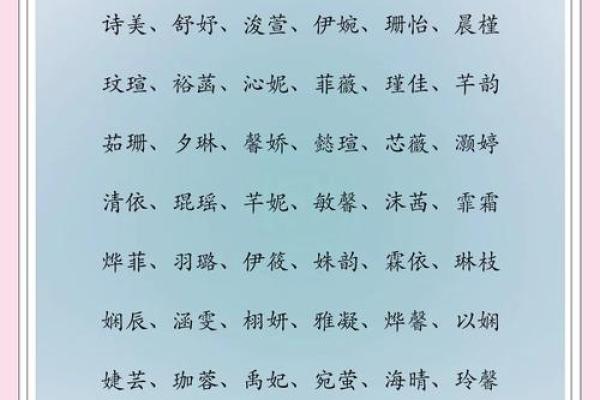 诗美、舒妤、浚萱、伊婉、珊怡、晨槿
玟瑄、裕菡、沁妮、菲薇、瑾佳、芊韵
茹珊、夕琳、馨娇、懿瑄、芯薇、灏婷
清依、琨瑶、芊妮、敏馨、沫茜、霏霜
烨菲、羽璐、伊筱、姝韵、霖依、琳枝
娴辰、涵雯、栩妍、雅凝、烨馨、以娴
婕芸、珈蓉、禹妃、宛萤、海晴、玲馨